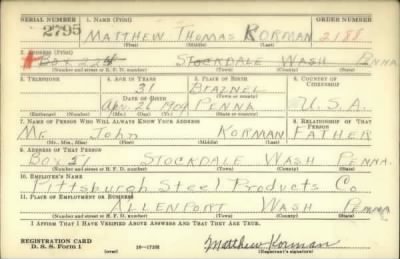 SERIAL NUMBER 1. NAME (Print)
2795 MATTHEW THOMAS KORMAN 2188
(First) (Middle) (Last)
2. ADDRESS (Print)
BOX 224 STOCKDALE WASH PENNA
(Number and street or R. F. D. number) (Town) (County) (State)
3. TELEPHONE 4. AGE IN YEARS 5. PLACE OF BIRTH 6. COUNTRY OF CITIZENSHIP
31 BRAZNEL
DATE OF BIRTH (Town or county)
Apr. 26 1909 PENNA U.S.A.
(Exchange) (Number) (Mo.) (Day) (Yr.) (State or country)
7. NAME OF PERSON WHO WILL ALWAYS KNOW YOUR ADDRESS 8. RELATIONSHIP OF THAT PERSON
MR. JOHN KORMAN FATHER
(Mr., Mrs., Miss) (First) (Middle) (Last)
9. ADDRESS OF THAT PERSON
BOX 51 STOCKDALE WASH PENNA.
(Number and street or R. F. D. number) (Town) (County) (State)
10. EMPLOYER'S NAME
Pittsburgh Steel Products Co
11. PLACE OF EMPLOYMENT OR BUSINESS
ALLENPORT WASH PENNA
(Number and street or R. F. D. number) (Town) (County) (State)
I AFFIRM THAT I HAVE VERIFIED ABOVE ANSWERS AND THAT THEY ARE TRUE.
REGISTRATION CARD
D. S. S. Form 1 (over) 16-17105 Matthew Korman
(Registrant's signature)